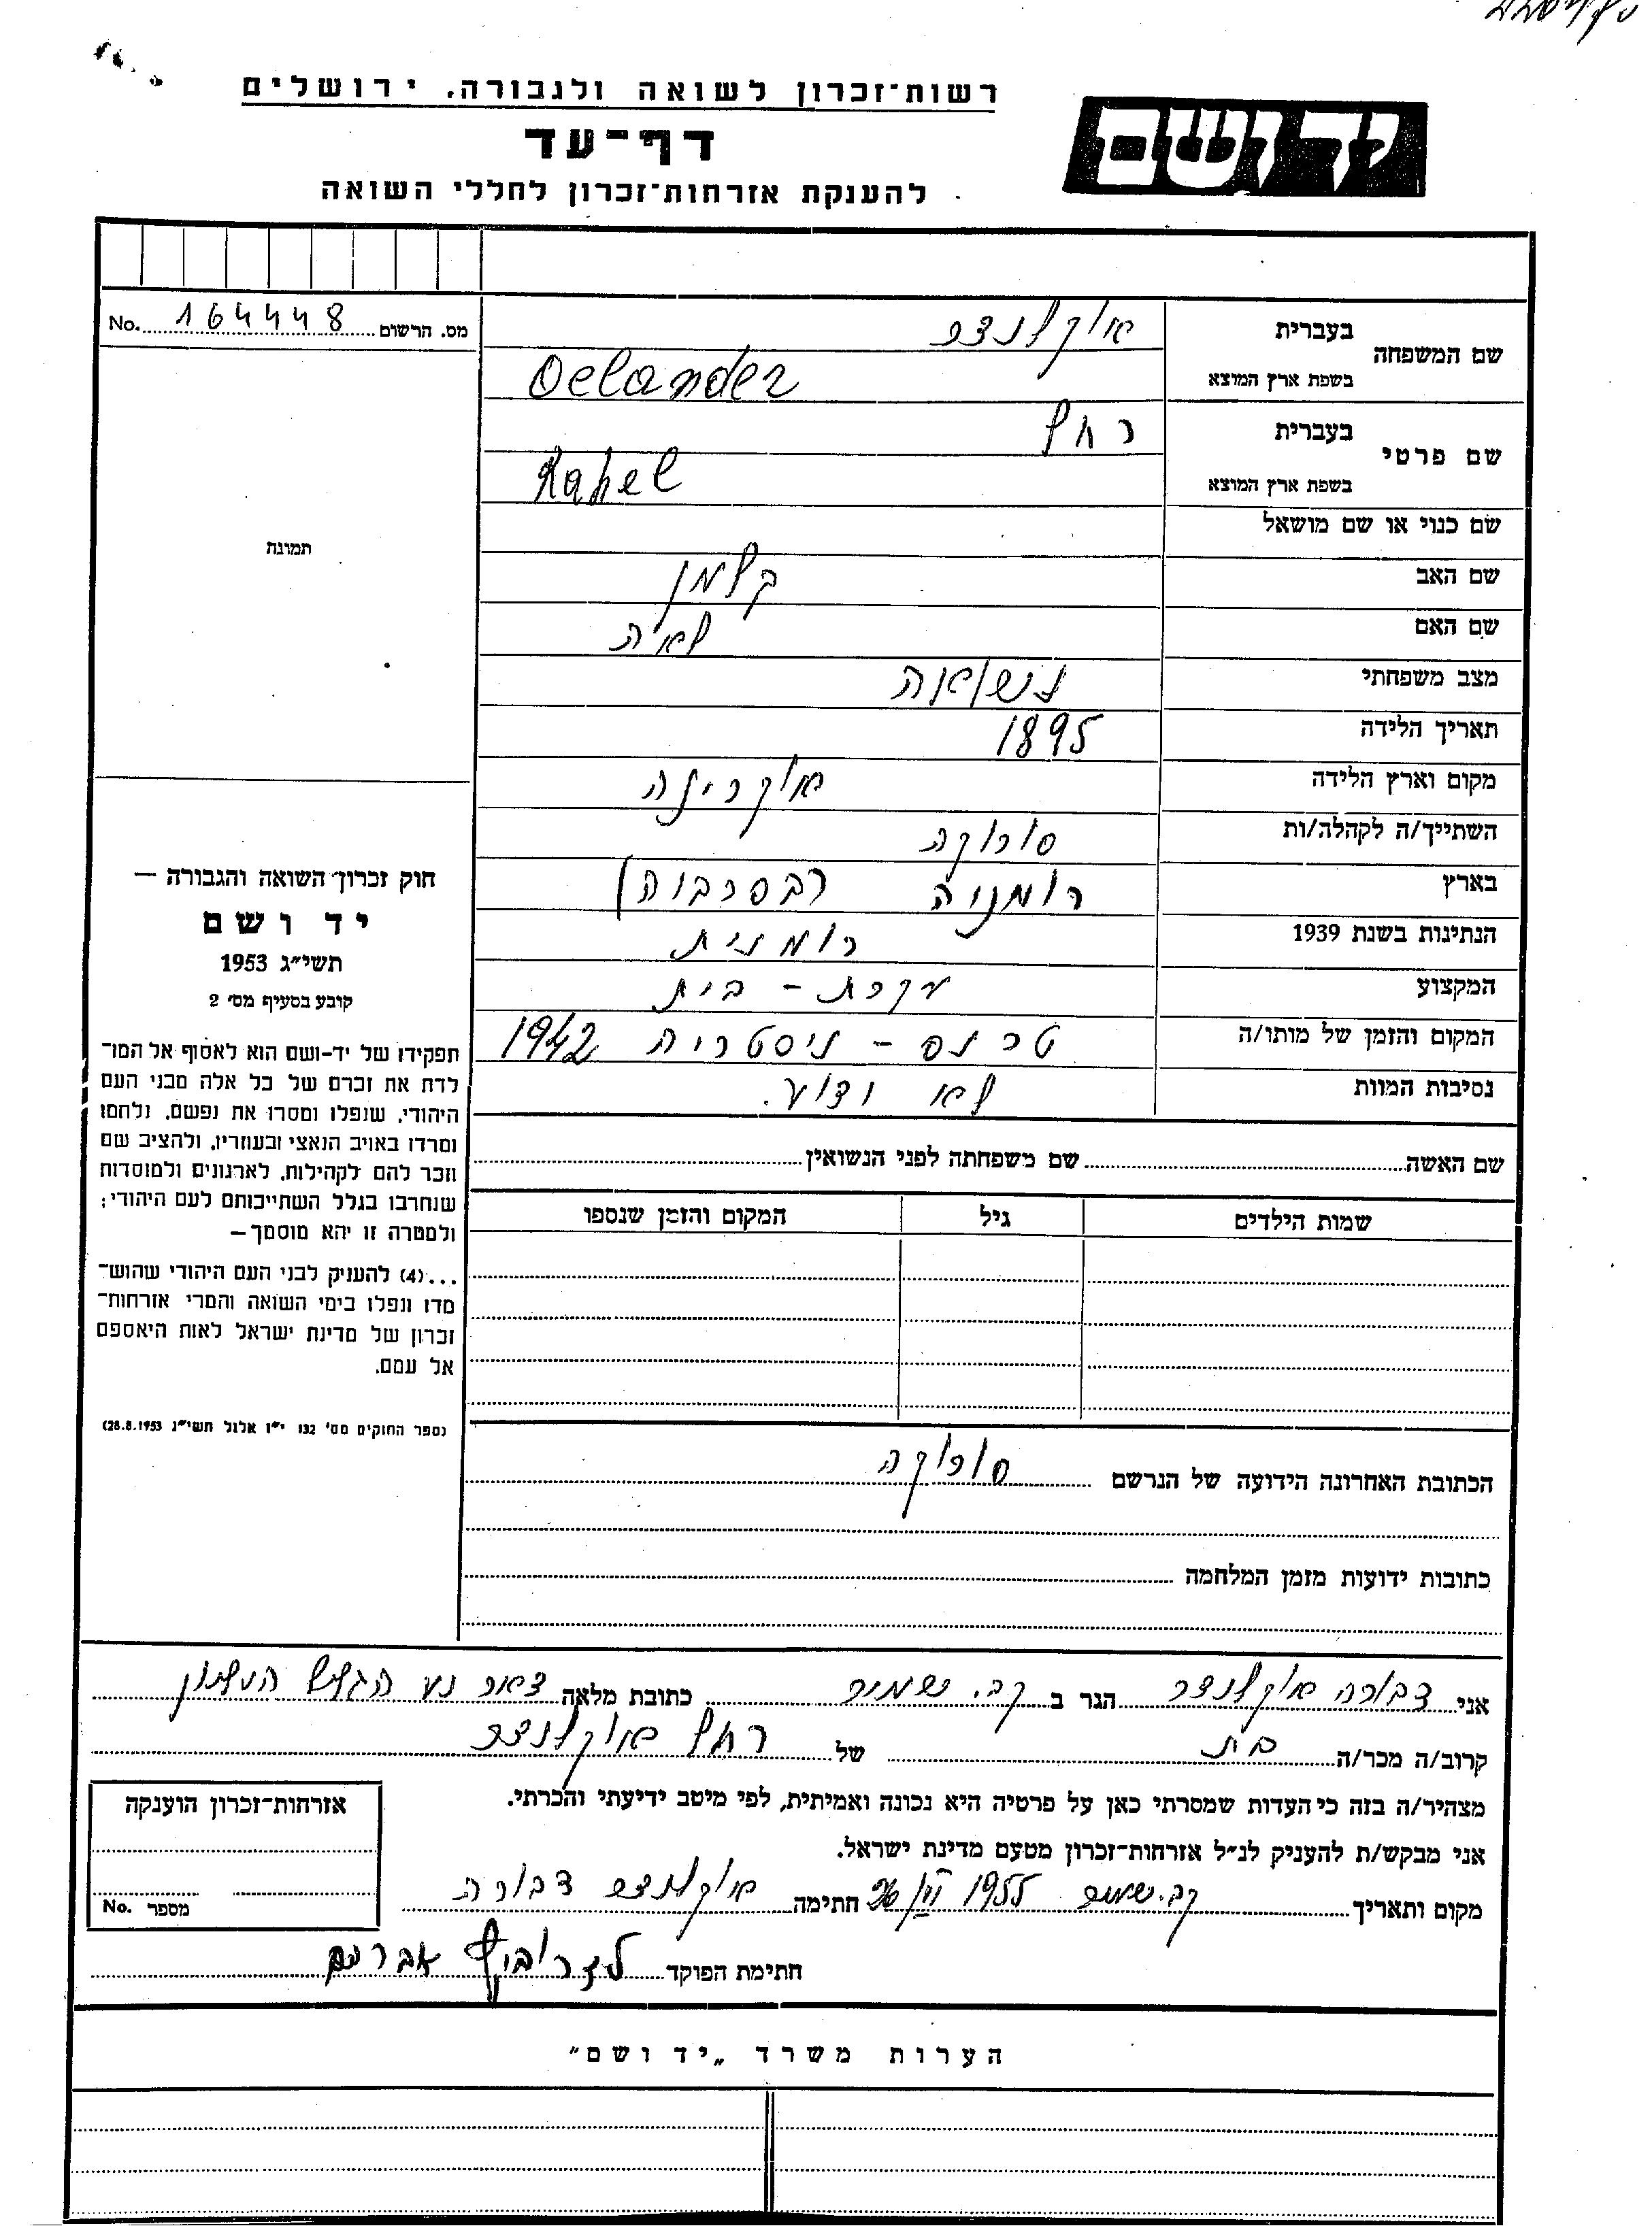 רשות־זכרון לשואה ולגבורה. ירושלים
יד ושם
דף־עד
להענקת אזרחות־זכרון לחללי השואה
מס. הרשום 164448 No.
שם המשפחה בעברית אוקלנדר
בשפת ארץ המוצא Oclander
שם פרטי בעברית רחל
בשפת ארץ המוצא Rahel
שם כנוי או שם מושאל
תמונה
שם האב קלמן
שם האם לאה
מצב משפחתי נשואה
תאריך הלידה 1895
מקום וארץ הלידה אוקרינה
השתייך/ה לקהלה/ות סורוקה
בארץ רומניה (בסרביה)
הנתינות בשנת 1939 רומנית
המקצוע עקרת - בית
המקום והזמן של מותו/ה טרנס - ניסטריה 1942
נסיבות המוות לא ידוע.
חוק זכרון השואה והגבורה —
יד ושם
תשי״ג 1953
קובע בסעיף מס׳ 2
תפקידו של יד-ושם הוא לאסוף אל המו־
לדת את זכרם של כל אלה מבני העם
היהודי, שנפלו ומסרו את נפשם, נלחמו
ומרדו באויב הנאצי ובעוזריו, ולהציב שם
וזכר להם לקהילות, לארגונים ולמוסדות
שנחרבו בגלל השתייכותם לעם היהודי;
ולמטרה זו יהא מוסמך —
...(4) להעניק לבני העם היהודי שהוש־
מדו ונפלו בימי השואה והמרי אזרחות־
זכרון של מדינת ישראל לאות היאספם
אל עמם.
(ספר החוקים מס׳ 132 י״ז אלול תשי״ג 28.8.1953)
שם האשה שם משפחתה לפני הנשואין
שמות הילדים גיל המקום והזמן שנספו
הכתובת האחרונה הידועה של הנרשם סורוקה
כתובות ידועות מזמן המלחמה
אני דבורה אוקלנדר הגר ב קב. שמיר כתובת מלאה דאר נע הגליל העליון
קרוב/ה מכר/ה בת של רחל אוקלנדר
מצהיר/ה בזה כי העדות שמסרתי כאן על פרטיה היא נכונה ואמיתית, לפי מיטב ידיעתי והכרתי.
אני מבקש/ת להעניק לנ״ל אזרחות־זכרון מטעם מדינת ישראל.
מקום ותאריך קב. שמיר 26/VII 1955 חתימה אוקלנדר דבורה
חתימת הפוקד אברהם
אזרחות־זכרון הוענקה
מספר No.
הערות משרד „יד ושם"